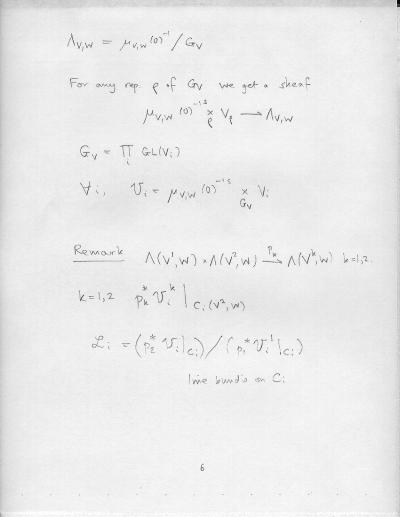 Λ_{V,W} = μ_{V,W}(0)^{-1} / G_V
For any rep. ρ of G_V we get a sheaf
μ_{V,W}(0)^{-1 s} ×_ρ V_ρ → Λ_{V,W}
G_V = ∏_i GL(V_i)
∀i, 𝒱_i = μ_{V,W}(0)^{-1 s} ×_{G_V} V_i
Remark Λ(V¹,W) × Λ(V²,W) →^{p_k} Λ(V^k,W) k=1,2.
k=1,2 p_k^* 𝒱_i^k |_{C_i(V²,W)}
ℒ_i = (p_2^* 𝒱_i|_{C_i}) / (p_1^* 𝒱_i^1|_{C_i})
line bundle on C_i
6